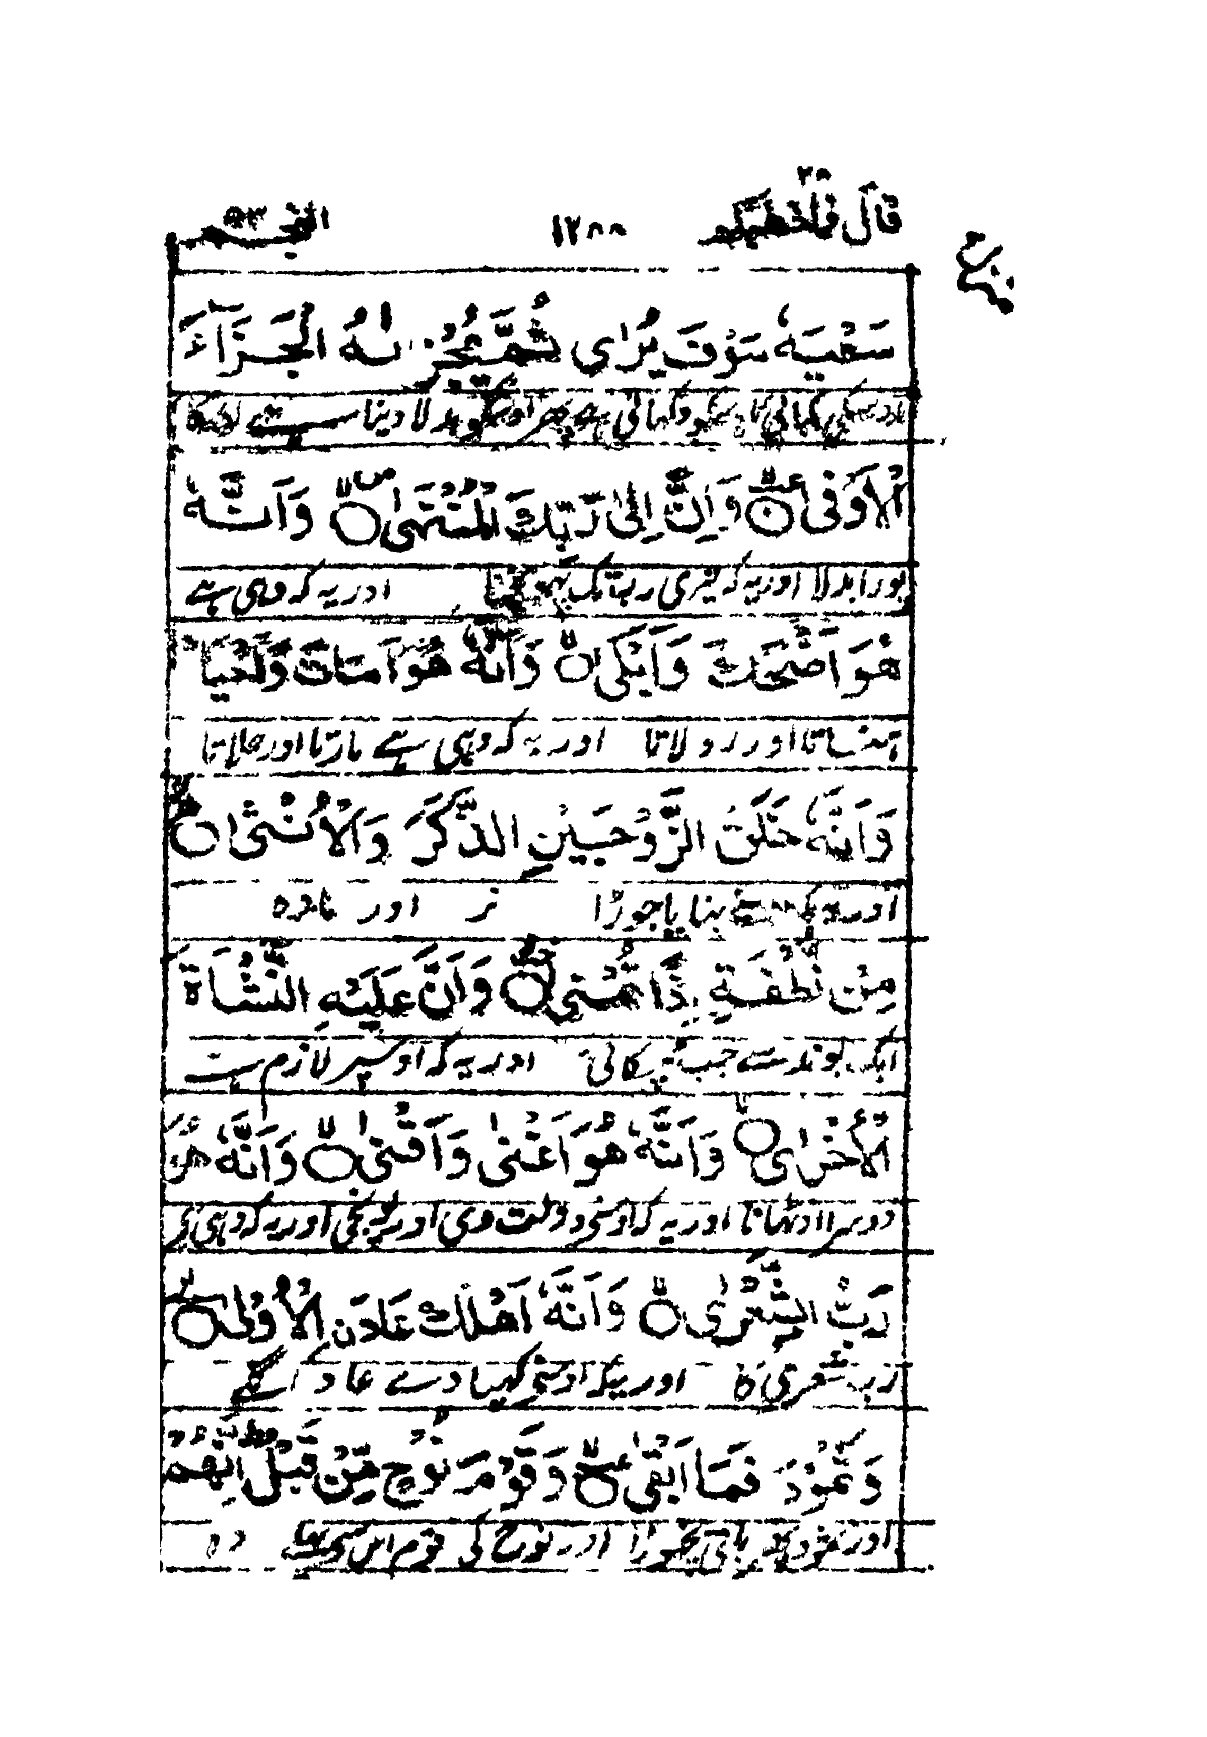 قال فما خطبكم ۲۷ ۱۲۸۸ النجم ۵۳
سَعْيَهٗ سَوْفَ يُرٰى ثُمَّ يُجْزٰىهُ الْجَزَآءَ
کمائی اوسکو دکھانی ہے پھر اوسکو بدلا دینا ہے
الْاَوْفٰى وَاَنَّ اِلٰى رَبِّكَ الْمُنْتَهٰى وَاَنَّهٗ
پورا بدلا اور یہ کہ تیری رب تک پہونچنا اور یہ کہ وہی ہے
هُوَ اَضْحَكَ وَاَبْكٰى وَاَنَّهٗ هُوَ اَمَاتَ وَاَحْيَا
ہنساتا اور رولاتا اور یہ کہ وہی ہے مارتا اور جلاتا
وَاَنَّهٗ خَلَقَ الزَّوْجَيْنِ الذَّكَرَ وَالْاُنْثٰى
اور یہ کہ بنایا جوڑا نر اور مادہ
مِنْ نُّطْفَةٍ اِذَا تُمْنٰى وَاَنَّ عَلَيْهِ النَّشْاَةَ
ایک بوند سے جب ٹپکائی اور یہ کہ اوسپر لازم ہے
الْاُخْرٰى وَاَنَّهٗ هُوَ اَغْنٰى وَاَقْنٰى وَاَنَّهٗ هُوَ
دوسرا اوٹھانا اور یہ کہ اوسنی دولت دی اور پونجی اور یہ کہ وہی ہی
رَبُّ الشِّعْرٰى وَاَنَّهٗ اَهْلَكَ عَادَنِ الْاُوْلٰى
رب شعری کا اور یہ کہ اوسنی کھپا دے عاد اگلے
وَثَمُوْدَ فَمَا اَبْقٰى وَقَوْمَ نُوْحٍ مِّنْ قَبْلُ اِنَّهُمْ
اور ثمود پھر باقی نچھوڑا اور نوح کی قوم اس سے وہ